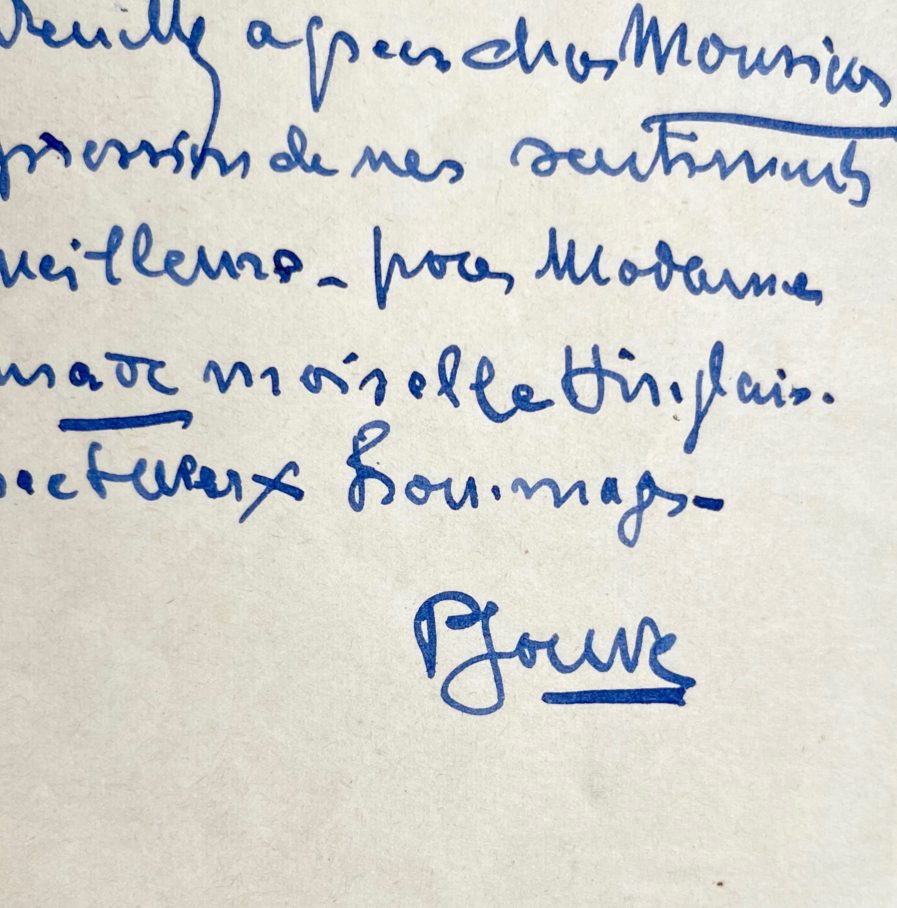 Veuillez agréer cher Monsieur
pression de mes sentiments
meilleurs - pour Madame
made moiselle
pectueux hommages -
PJouve